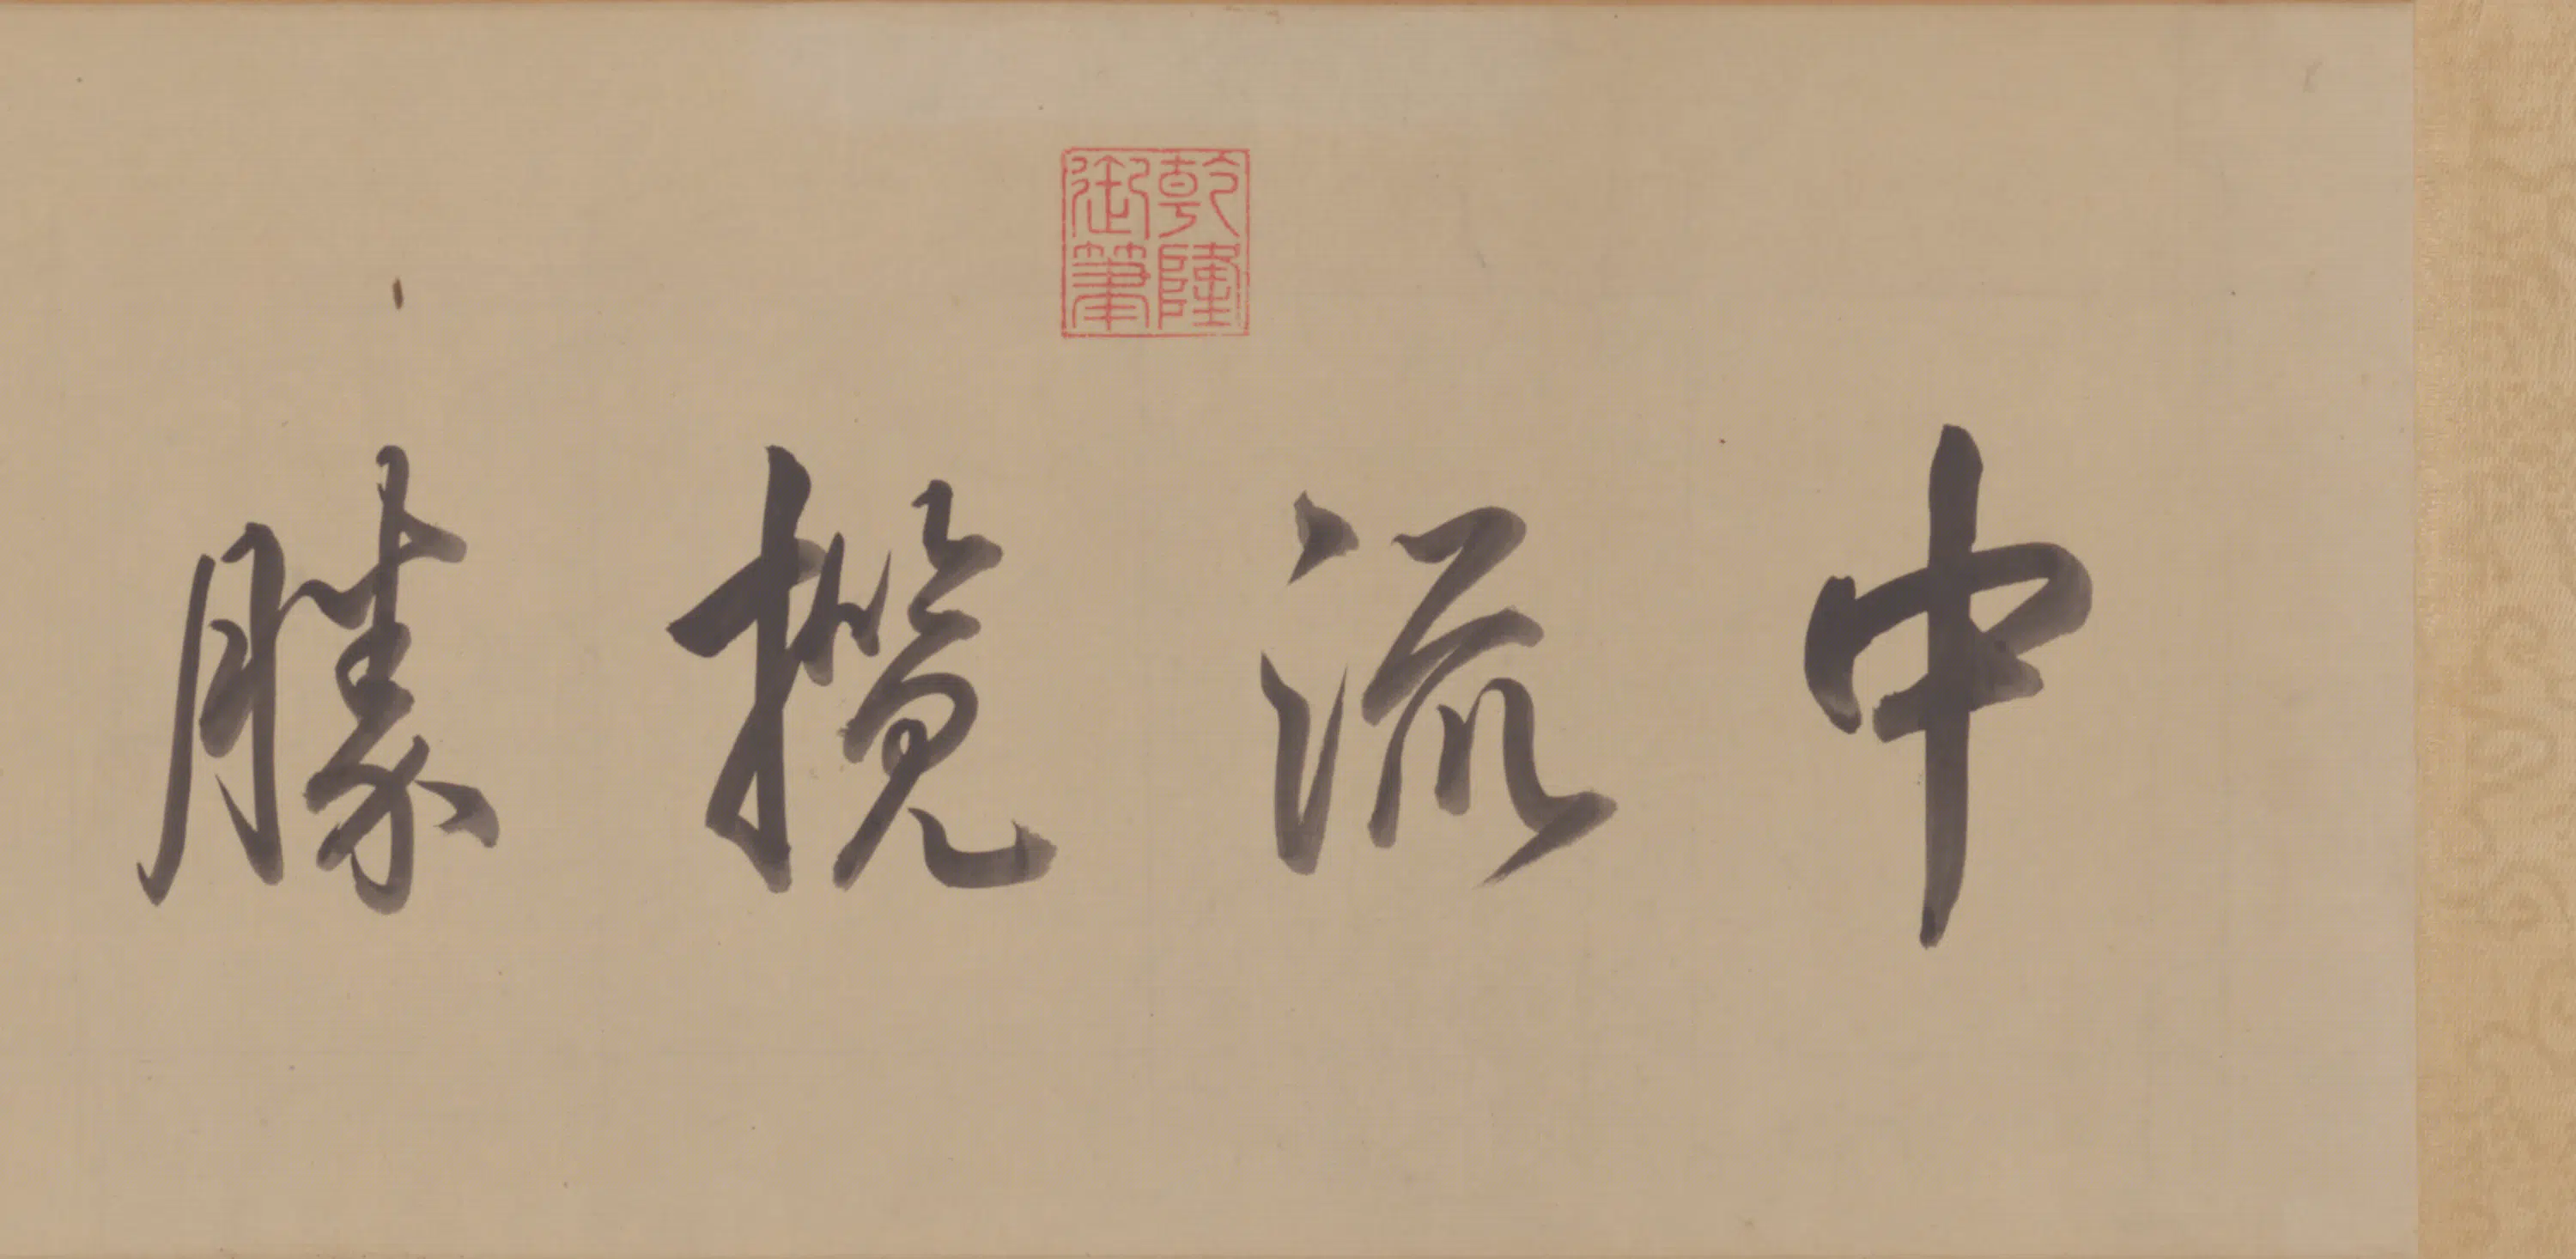 中流攬勝
乾隆
御筆